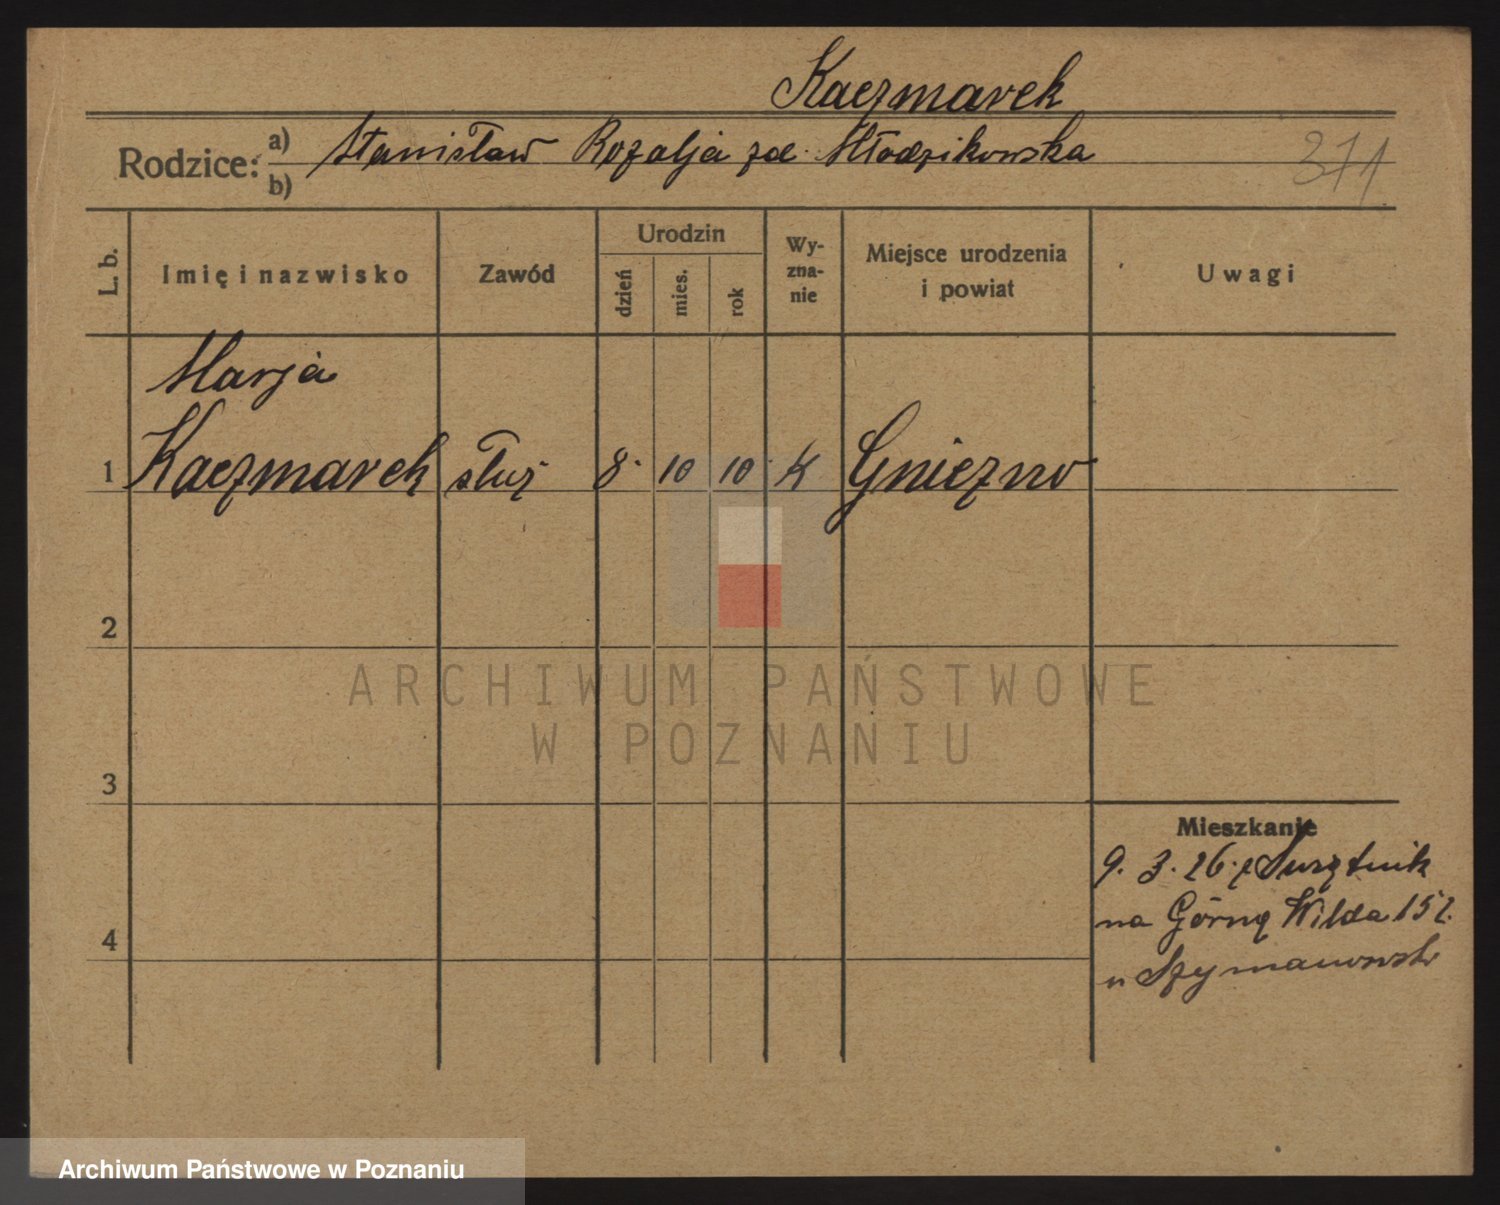 Kaczmarek
Rodzice: a) Stanisław Rozalja zd. Młodzikowska
b)
371
L. b.
Imię i nazwisko
Zawód
Urodzin
dzień
mies.
rok
Wy-
zna-
nie
Miejsce urodzenia
i powiat
Uwagi
Marja
1 Kaczmarek służ 8. 10 10. K Gniezno
2
ARCHIWUM PAŃSTWOWE
W POZNANIU
3
Mieszkanie
9. 3. 26. z
na Górną Wilda 152.
4
u
Archiwum Państwowe w Poznaniu